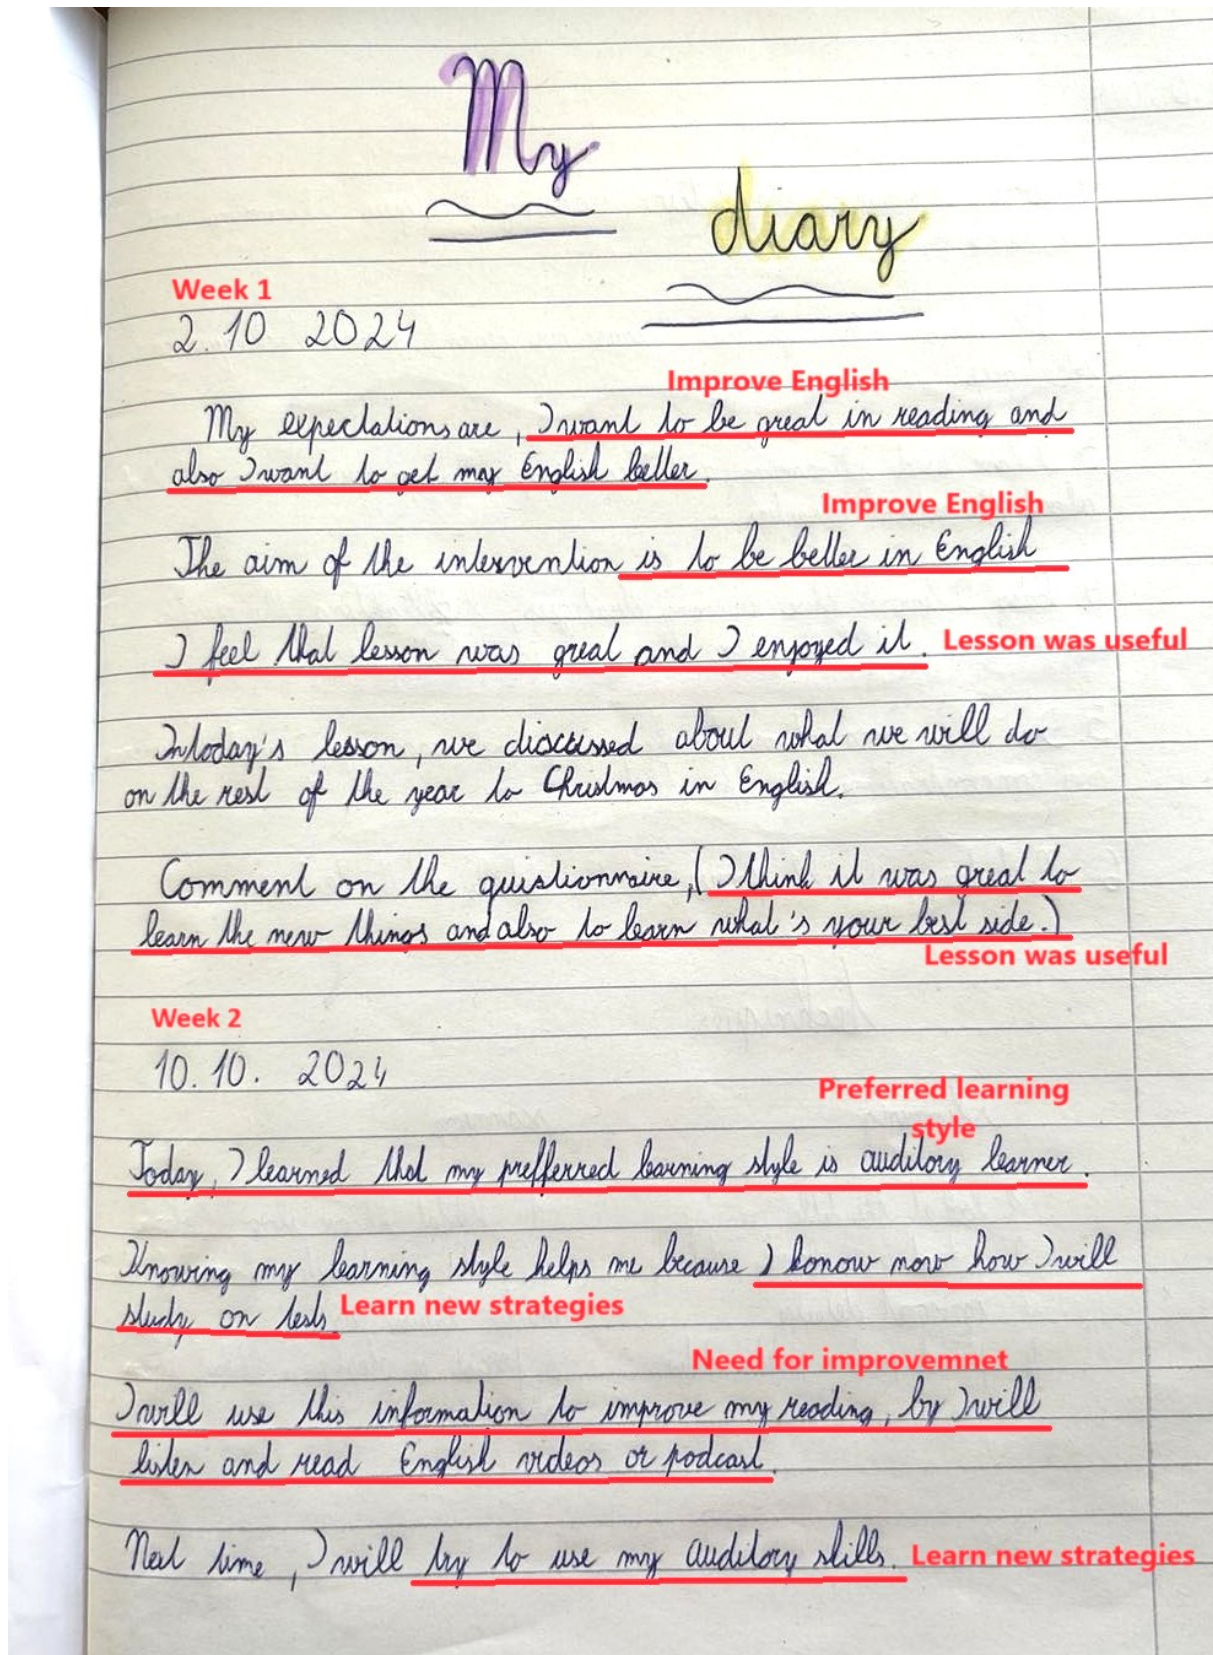 My
diary
Week 1
2.10 2024
Improve English
My expectations are, I want to be great in reading and
also I want to get my English better.
Improve English
The aim of the intervention is to be better in English
I feel that lesson was great and I enjoyed it. Lesson was useful
In today's lesson, we discussed about what we will do
on the rest of the year to Christmas in English.
Comment on the quistionnaire, (I think it was great to
learn the new things and also to learn what's your best side.)
Lesson was useful
Week 2
10. 10. 2024
Preferred learning
style
Today, I learned that my prefferred learning style is auditory learner.
Knowing my learning style helps me because I konow now how I will
study on tests. Learn new strategies
Need for improvemnet
I will use this information to improve my reading, by I will
listen and read English videos or podcast.
Next time, I will try to use my auditory skills. Learn new strategies